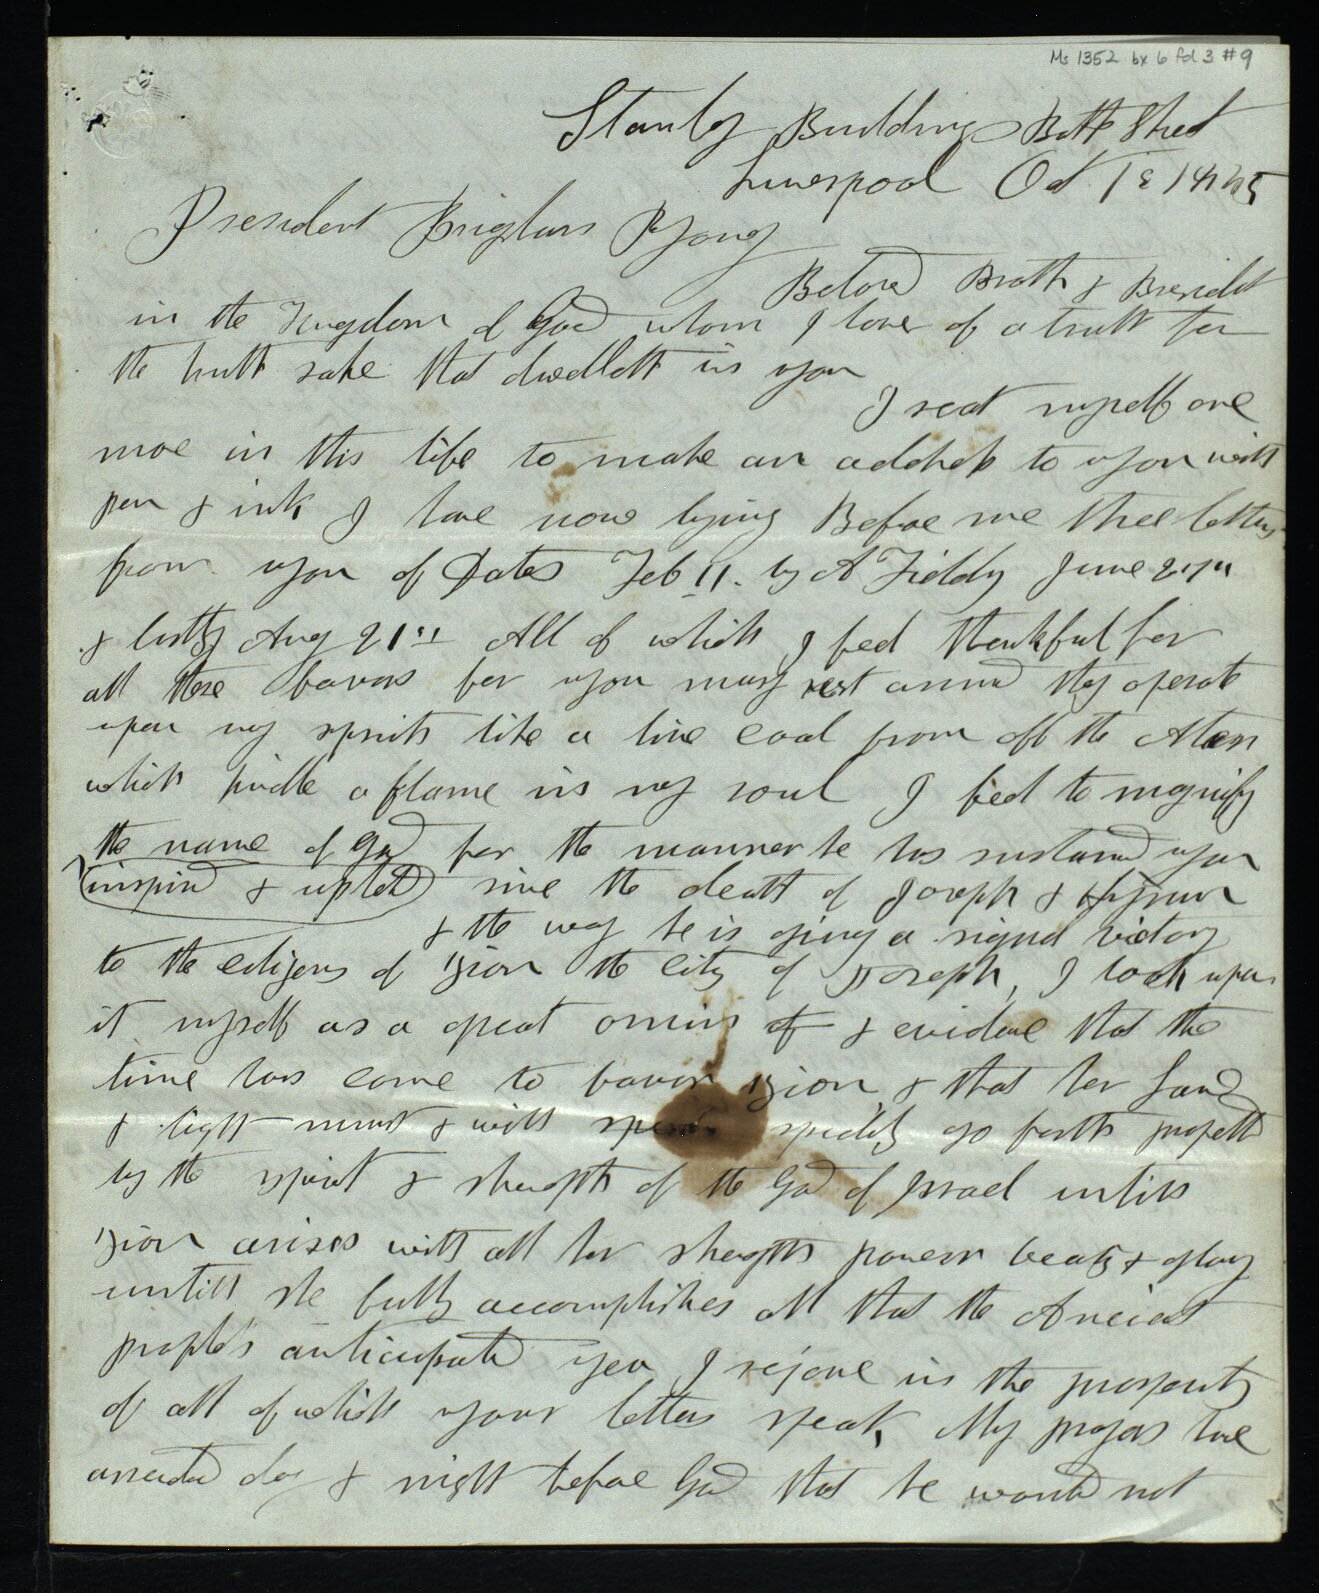 Ms 1352 bx 6 fd 3 #9
Stanley Buildings Bath Street
Liverpool Oct 1st 1845
President Brigham Young
Beloved Broth & President
in the Kingdom of God whom I love of a truth for
the truth sake that dwelleth in you
I seat myself one
moe in this life to make an address to you with
pen & ink I have now lying Before me three letters
from you of Dates Feb 11. by A Fieldy June 27th
& lastly Aug 21st All of which I feel thankful for
all these favors for you may rest assured they operate
upon my spirits like a live coal from off the Altar
which kindle a flame in my soul I feel to magnify
the name of God for the manner he has sustaned you
inspired & upheld since the death of Joseph & Hyrum
& the way he is giving a signal victory
to the citizens of Zion the City of Joseph, I look upon
it myself as a great omin of & evidence that the
time has come to favor Zion & that her Law
& light must & will speedily go forth propelld
by the spirit & strength of the God of Israel untill
Zion arises with all her strength power beauty & glory
untill she fully accomplishes all that the Ancient
prophets anticipated yea I rejoice in the prosperity
of all of which your letters speak, My prayers have
ascended day & night before God that he would not